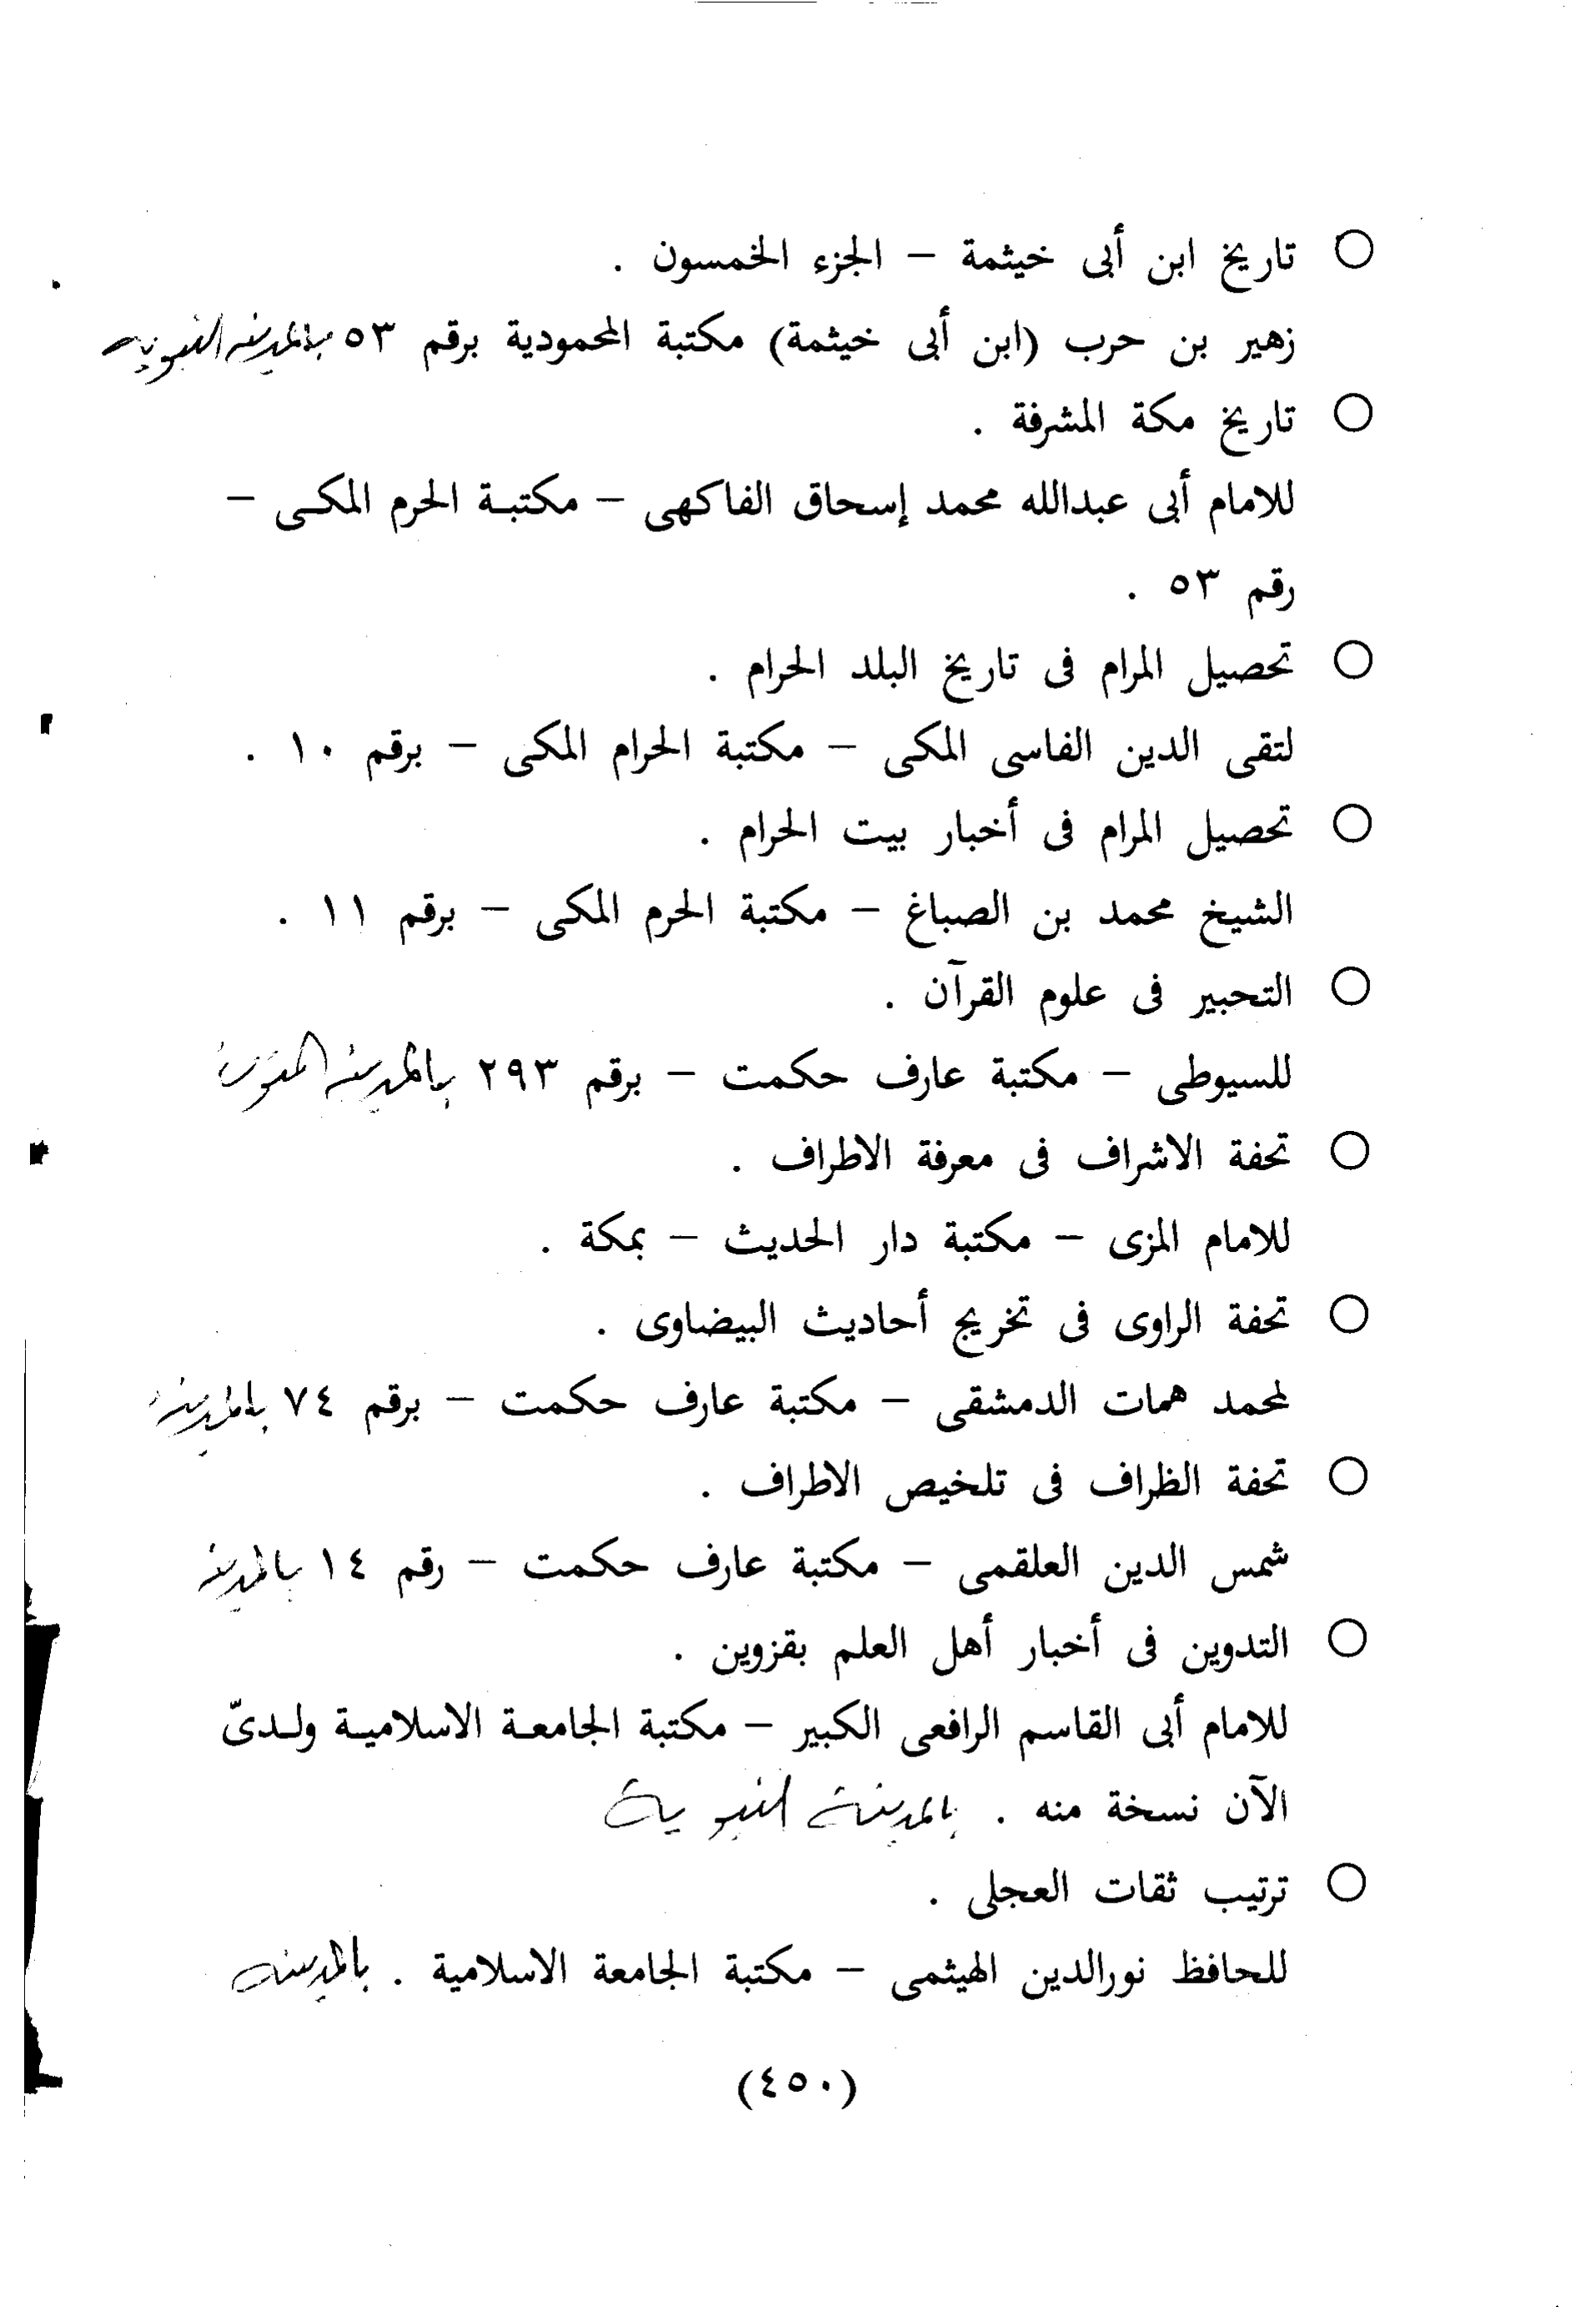 ○ تاريخ ابن أبى خيثمة – الجزء الخمسون .
زهير بن حرب (ابن أبى خيثمة) مكتبة المحمودية برقم ٥٣ بالمدينة النبوية
○ تاريخ مكة المشرفة .
للامام أبى عبدالله محمد إسحاق الفاكهى – مكتبة الحرم المكى –
رقم ٥٣ .
○ تحصيل المرام فى تاريخ البلد الحرام .
لتقى الدين الفاسى المكى – مكتبة الحرام المكى – برقم ١٠ .
○ تحصيل المرام فى أخبار بيت الحرام .
الشيخ محمد بن الصباغ – مكتبة الحرم المكى – برقم ١١ .
○ التحبير فى علوم القرآن .
للسيوطى – مكتبة عارف حكمت – برقم ٢٩٣ بالمدينة المنورة
○ تحفة الاشراف فى معرفة الاطراف .
للامام المزى – مكتبة دار الحديث – بمكة .
○ تحفة الراوى فى تخريج أحاديث البيضاوى .
لمحمد همات الدمشقى – مكتبة عارف حكمت – برقم ٧٤ بالمدينة
○ تحفة الظراف فى تلخيص الاطراف .
شمس الدين العلقمى – مكتبة عارف حكمت – رقم ١٤ بالمدينة
○ التدوين فى أخبار أهل العلم بقزوين .
للامام أبى القاسم الرافعى الكبير – مكتبة الجامعة الاسلامية ولدىّ
الآن نسخة منه . بالمدينة النبوية
○ ترتيب ثقات العجلى .
للحافظ نورالدين الهيثمى – مكتبة الجامعة الاسلامية . بالمدينة
(٤٥٠)